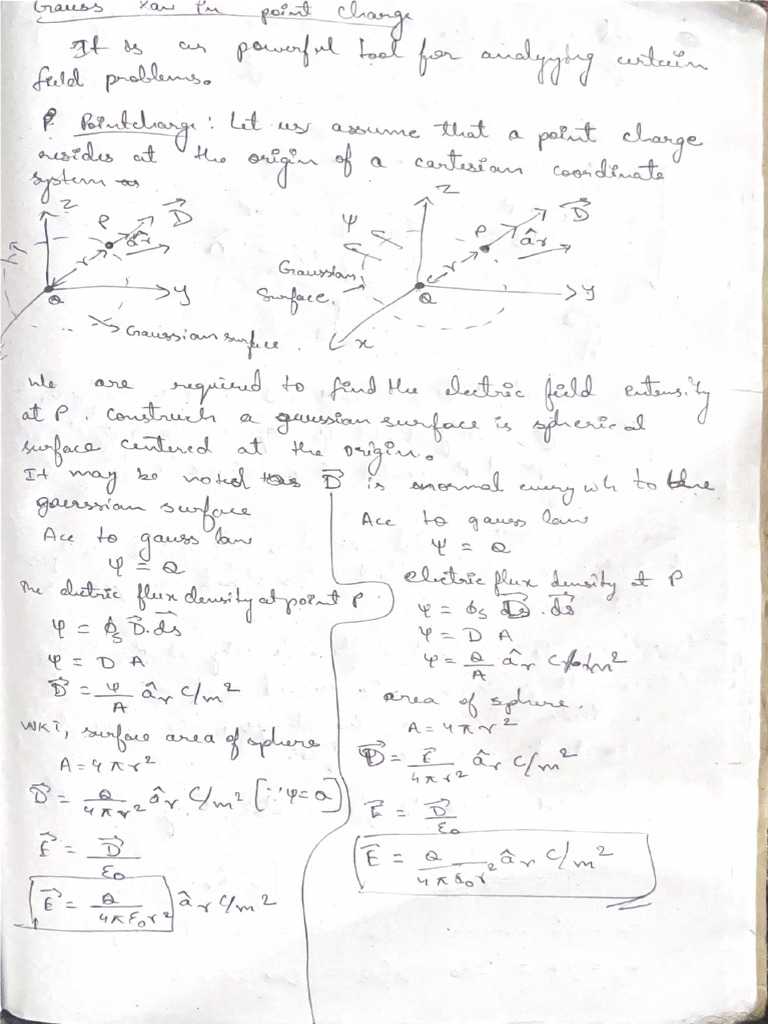 Gauss Law in point charge
It is an powerful tool for analyzing certain
field problems.
P Pointcharge: Let us assume that a point charge
resides at the origin of a cartesian coordinate
system
Z
P
D⃗
âr
r
Q
y
Gaussian surface.
Z
ψ
P
D⃗
âr
r
Gaussian
Surface.
Q
y
x
We are required to find the electric field entensity
at P. Construch a gaussian surface is spherical
surface centered at the origin.
It may be noted D⃗ is normal every wh to the
gaussian surface
Acc to gauss law
ψ = Q
The eletric flux density at point P
ψ = ∮s D⃗.ds⃗
ψ = D A
D⃗ = ψ/A âr C/m²
WKT, surface area of sphere
A = 4πr²
D⃗ = Q/4πr² âr C/m² [∵ψ=Q]
E⃗ = D⃗/ε0
E⃗ = Q/4πε0r² âr C/m²
Acc to gauss law
ψ = Q
electric flux density at P
ψ = ∮s . ds⃗
ψ = D A
ψ = Q/A âr C/m²
area of sphere.
A = 4πr²
D⃗ = E/4πr² âr C/m²
E⃗ = D⃗/ε0
E⃗ = Q/4πε0r² âr C/m²